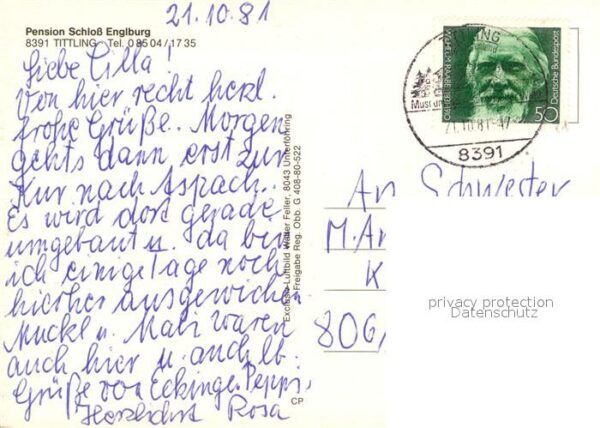 21.10.81
Pension Schloß Englburg
8391 TITTLING - Tel. 0 85 04 / 17 35
Liebe Cilla!
Von hier recht herzl.
frohe Grüße. Morgen
gehts dann erst zur
Kur nach Aspach.
Es wird dort gerade
umgebaut u. da bin
ich einige Tage noch
hierher ausgewichen.
Muckl u. Mabi waren
auch hier u. auch lb.
Grüße von Eckinger Peppi.
Herzlichst Rosa
Exclusiv-Luftbild Walter Feller, 8043 Unterföhring
Freigabe Reg. Obb. G 408-80-522
CP
Deutsche Bundespost
50
21.10.81-17
8391
An Schwester
M. An
K
806
privacy protection
Datenschutz